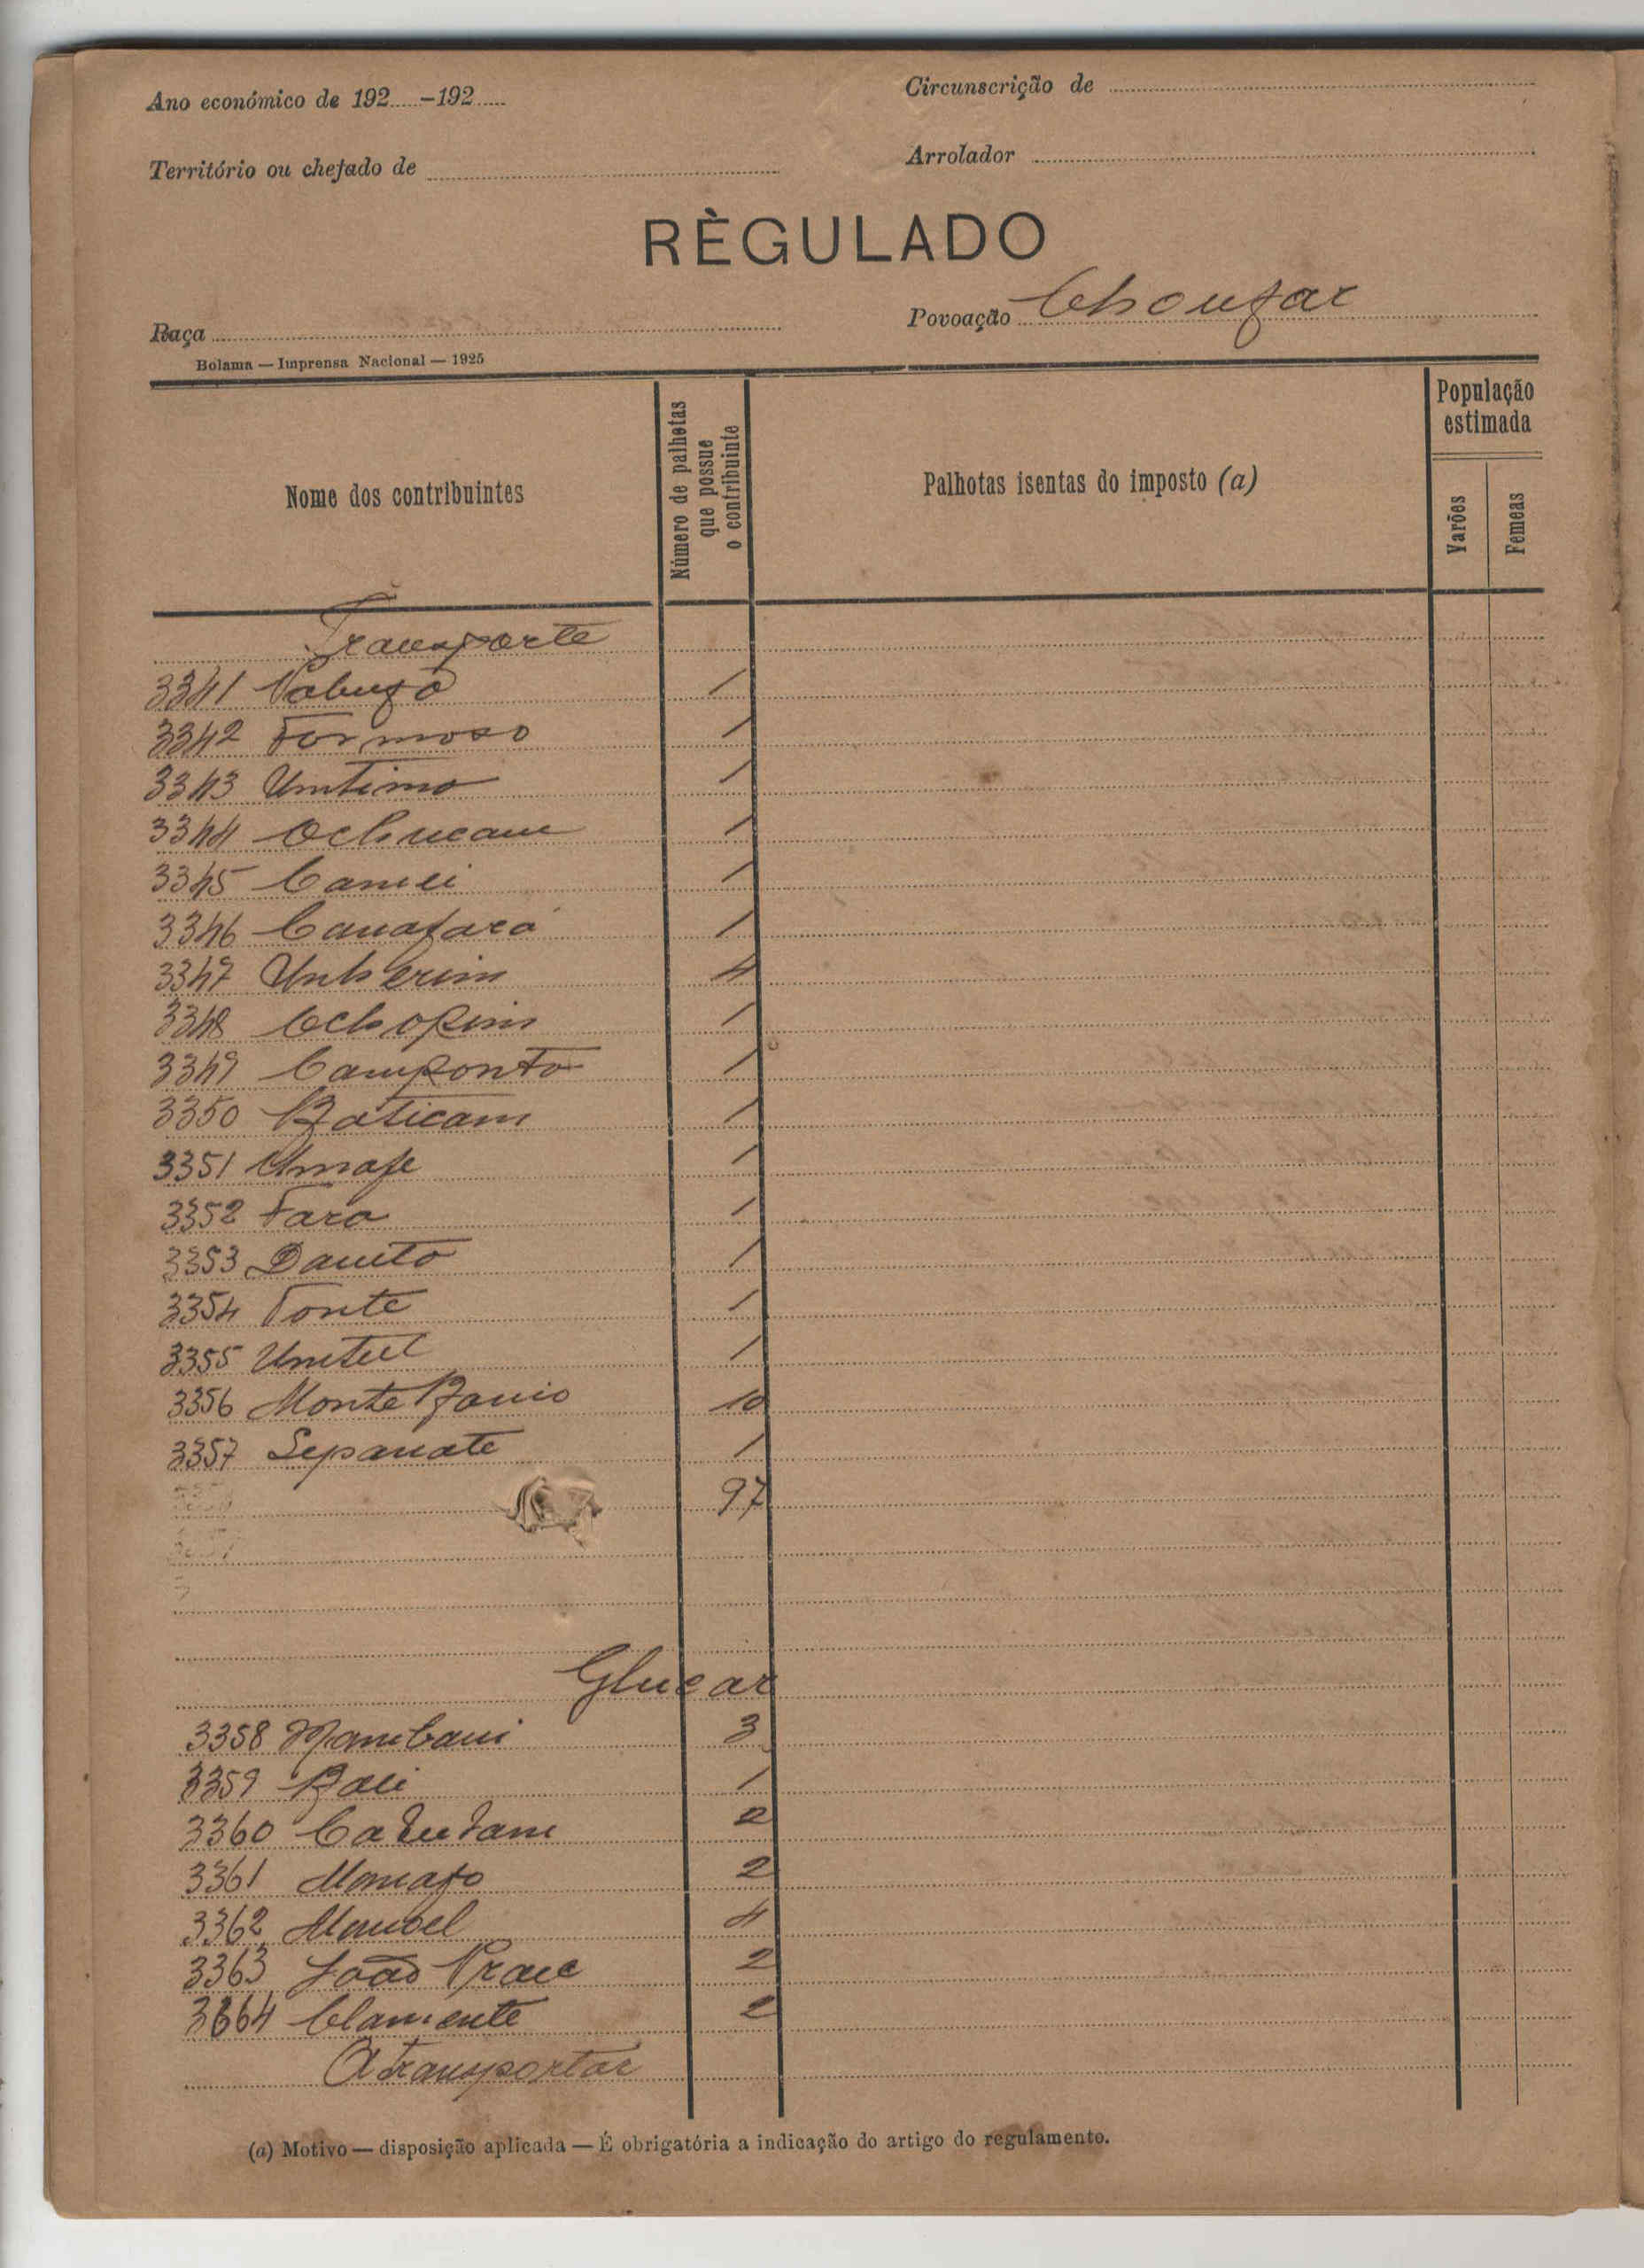 Ano económico de 192.....-192.....
Circunscrição de
Território ou chefado de
Arrolador
RÈGULADO
Raça
Povoação Choufar
Bolama — Imprensa Nacional — 1925
Nome dos contribuintes
Número de palhotas que possue o contribuinte
Palhotas isentas do imposto (a)
População estimada
Varões
Femeas
Transporte
3341 Nabufo 1
3342 Formoso 1
3343 Untimo 1
3344 1
3345 1
3346 Canafará 1
3347 4
3348 1
3349 Camponto 1
3350 Baticam 1
3351 Umafe 1
3352 Fara 1
3353 1
3354 Tonte 1
3355 1
3356 Monte 10
3357 1
97
Glucar
3358 3
3359 1
3360 2
3361 2
3362 Manoel 4
3363 João 2
3364 Clamente 2
A transportar
(a) Motivo — disposição aplicada — É obrigatória a indicação do artigo do regulamento.